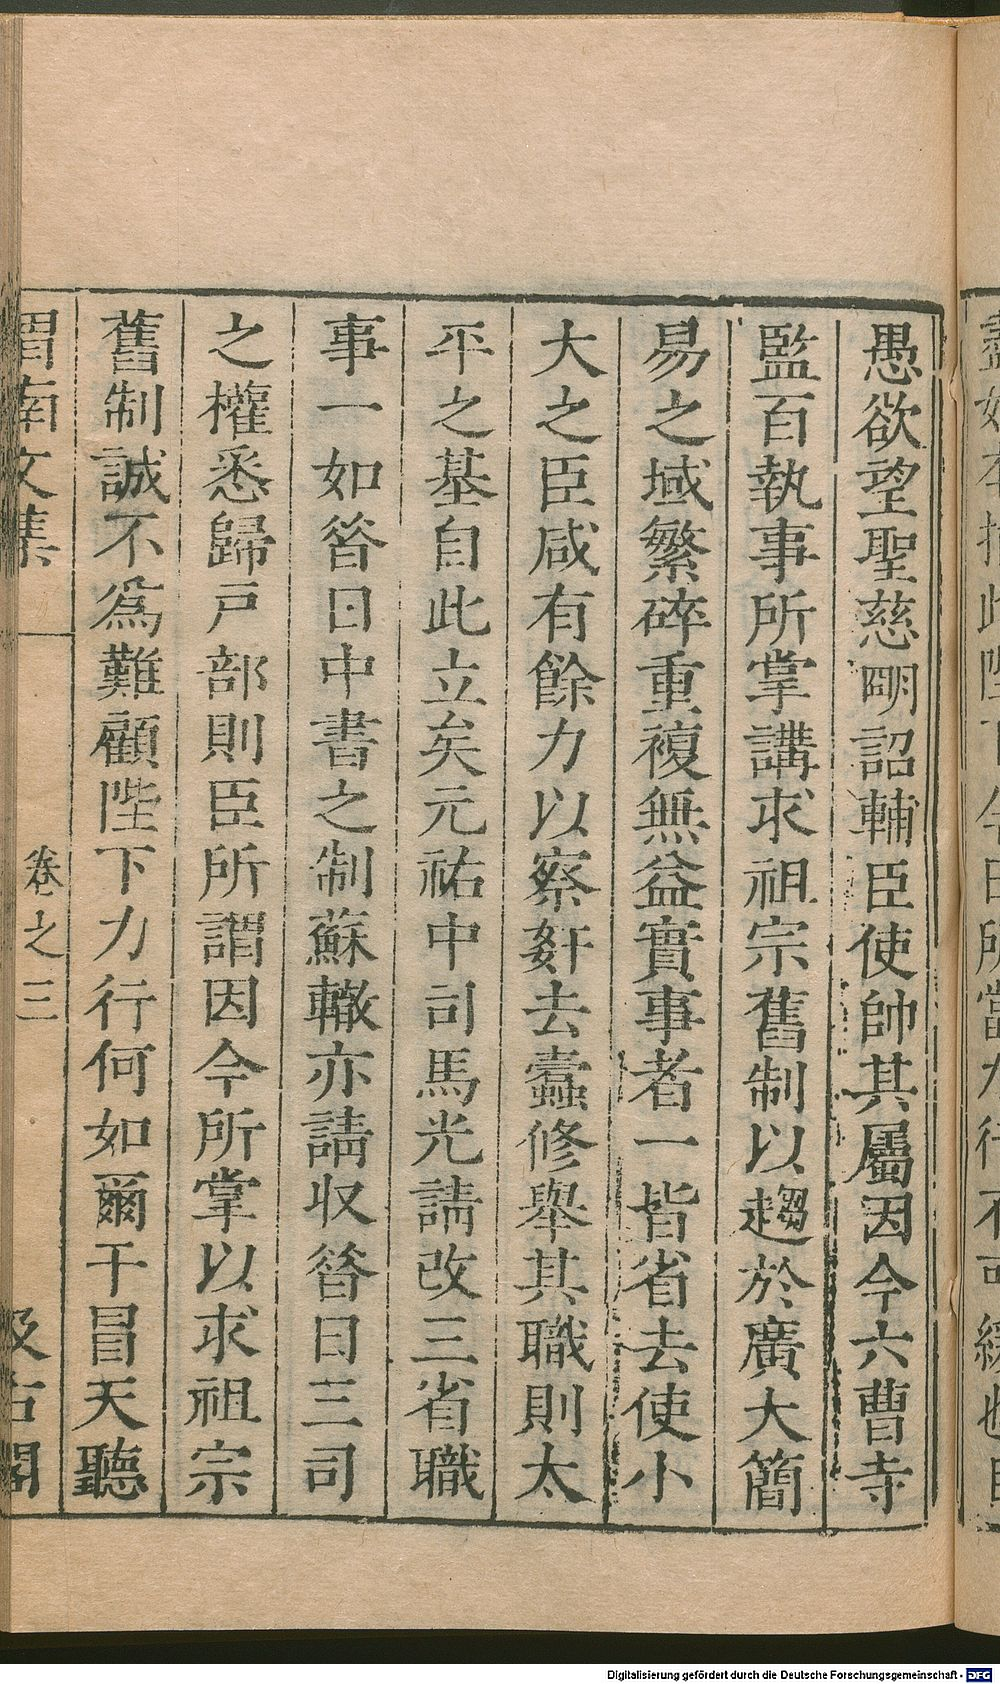 愚欲望聖慈明詔輔臣使帥其屬因今六曹寺
監百執事所掌講求祖宗舊制以趨於廣大簡
易之域繁碎重複無益實事者一皆省去使小
大之臣咸有餘力以察姧去蠹修舉其職則太
平之基自此立矣元祐中司馬光請改三省職
事一如昝日中書之制蘇轍亦請収昝日三司
之權悉歸戸部則臣所謂因今所掌以求祖宗
舊制誠不爲難顧陛下力行何如爾干冒天聽
渭南文集 卷之三 汲古閣
Digitalisierung gefördert durch die Deutsche Forschungsgemeinschaft - DFG